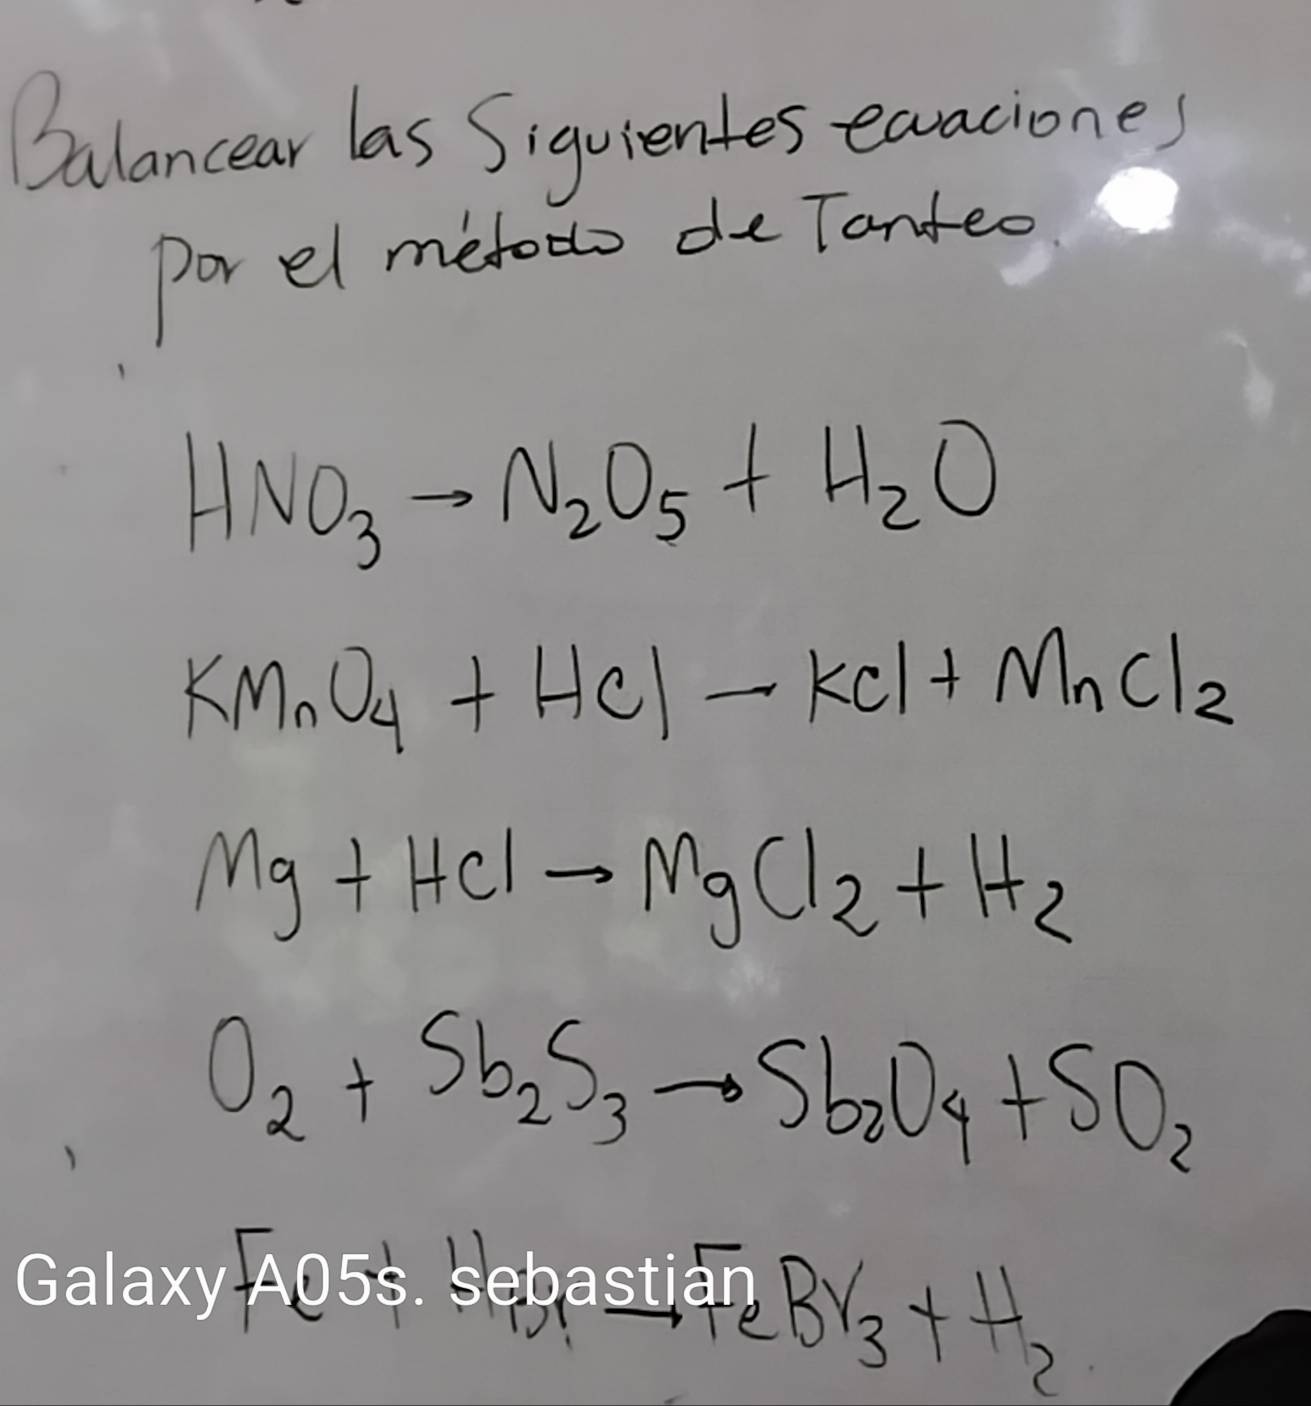 Balancear las Siguientes ecuaciones
por el método de Tanteo.
HNO₃ → N₂O₅ + H₂O
KMnO₄ + HCl → KCl + MnCl₂
Mg + HCl → MgCl₂ + H₂
O₂ + Sb₂S₃ → Sb₂O₄ + SO₂
Fe + HBr → FeBr₃ + H₂
Galaxy A05s. sebastian